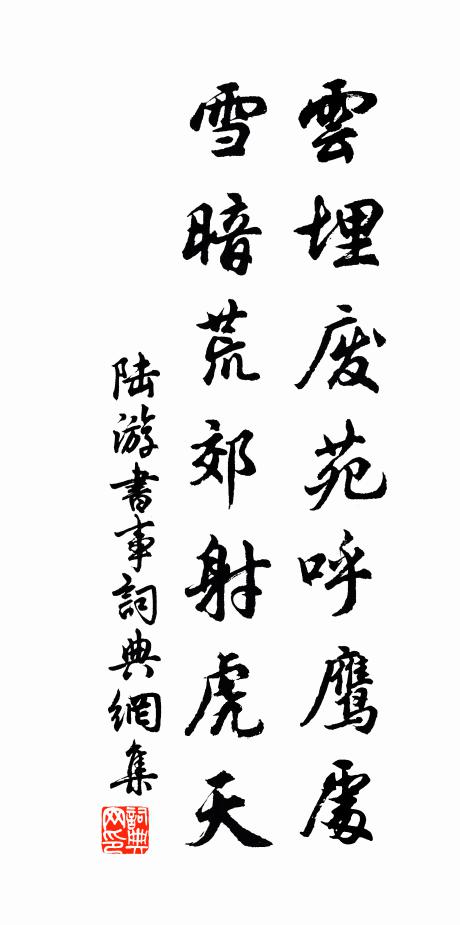 雲埋废苑呼鹰處
雪暗荒郊射虎天
陆游書事詞典網集
詞典网印